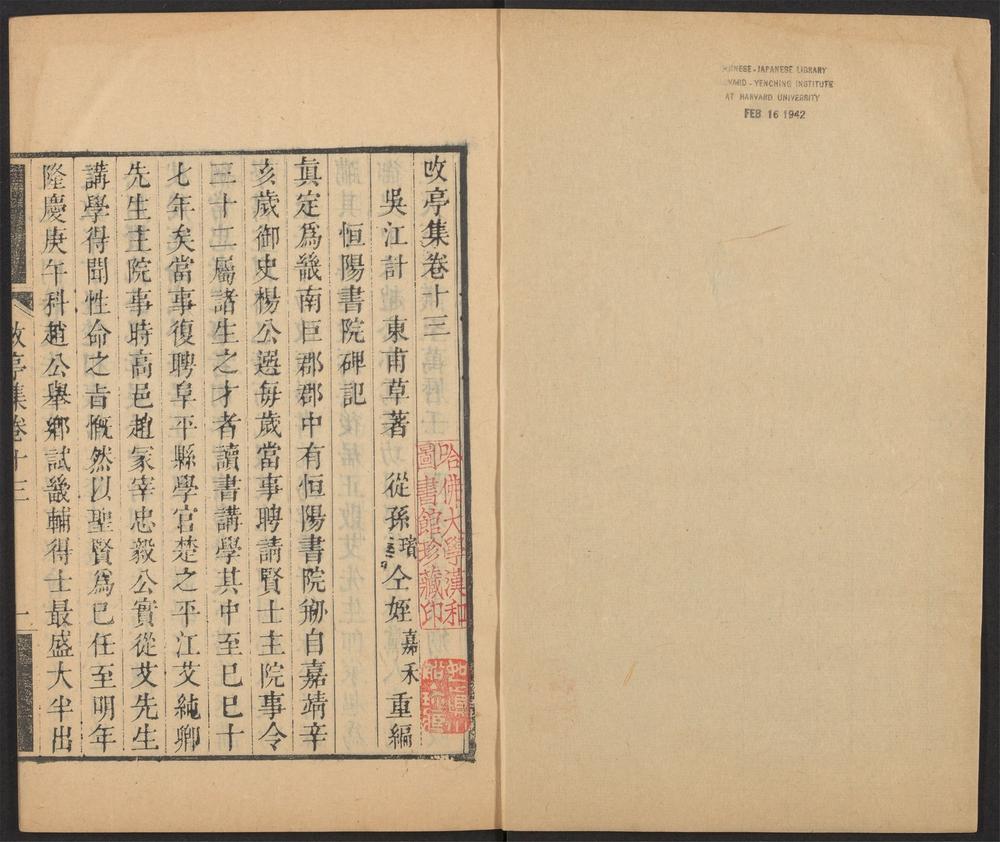 CHINESE-JAPANESE LIBRARY
HARVARD-YENCHING INSTITUTE
AT HARVARD UNIVERSITY
FEB 16 1942
攺亭集卷十三
吳江計 東甫草著 從孫 璸 仝姪 嘉禾 重編
恒陽書院碑記
真定爲畿南巨郡郡中有恒陽書院刱自嘉靖辛
亥歲御史楊公選每歲當事聘請賢士主院事令
三十二屬諸生之才者讀書講學其中至己巳十
七年矣當事復聘阜平縣學官楚之平江艾純卿
先生主院事時高邑趙冡宰忠毅公實從艾先生
講學得聞性命之旨慨然以聖賢爲己任至明年
隆慶庚午科趙公舉鄉試畿輔得士最盛大半出
攺亭集卷十三
一
哈佛大學漢和
圖書館珍藏印